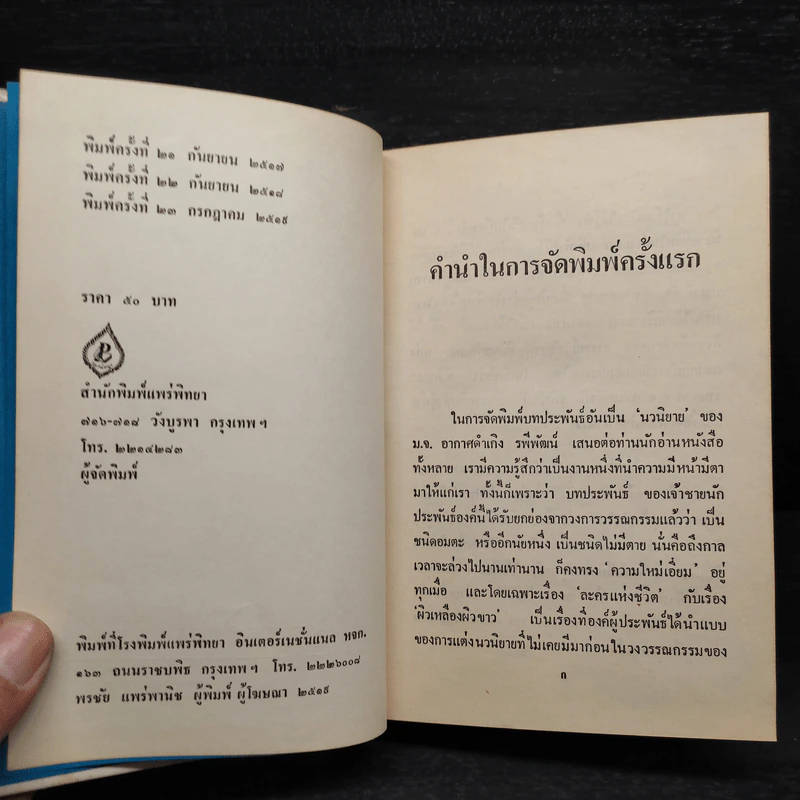 พิมพ์ครั้งที่ ๒๑ กันยายน ๒๕๑๗
พิมพ์ครั้งที่ ๒๒ กันยายน ๒๕๑๘
พิมพ์ครั้งที่ ๒๓ กรกฎาคม ๒๕๑๙
ราคา ๕๐ บาท
สำนักพิมพ์แพร่พิทยา
๗๑๖-๗๑๘ วังบูรพา กรุงเทพฯ
โทร. ๒๒๑๔๒๘๓
ผู้จัดพิมพ์
พิมพ์ที่โรงพิมพ์แพร่พิทยา อินเตอร์เนชั่นแนล หจก.
๑๖๓ ถนนราชบพิธ กรุงเทพฯ โทร. ๒๒๒๖๐๐๘
พรชัย แพร่พานิช ผู้พิมพ์ ผู้โฆษณา ๒๕๑๙
คำนำในการจัดพิมพ์ครั้งแรก
ในการจัดพิมพ์บทประพันธ์อันเป็น ‘นวนิยาย’ ของ
ม.จ. อากาศดำเกิง รพีพัฒน์ เสนอต่อท่านนักอ่านหนังสือ
ทั้งหลาย เรามีความรู้สึกว่าเป็นงานหนึ่งที่นำความมีหน้ามีตา
มาให้แก่เรา ทั้งนี้ก็เพราะว่า บทประพันธ์ ของเจ้าชายนัก
ประพันธ์องค์นี้ได้รับยกย่องจากวงการวรรณกรรมแล้วว่า เป็น
ชนิดอมตะ หรืออีกนัยหนึ่ง เป็นชนิดไม่มีตาย นั่นคือถึงกาล
เวลาจะล่วงไปนานเท่านาน ก็คงทรง ‘ความใหม่เอี่ยม’ อยู่
ทุกเมื่อ และโดยเฉพาะเรื่อง ‘ละครแห่งชีวิต’ กับเรื่อง
‘ผิวเหลืองผิวขาว’ เป็นเรื่องที่องค์ผู้ประพันธ์ได้นำแบบ
ของการแต่งนวนิยายที่ไม่เคยมีมาก่อนในวงวรรณกรรมของ
ก